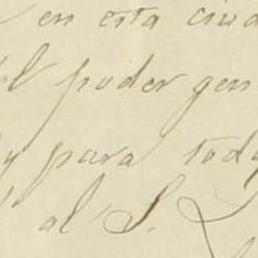 en esta ciud
el poder gen
y para tod
al S.